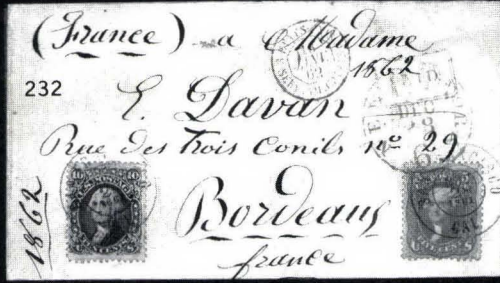 (France) a Madame
1862
232
E. Davan
Rue des Trois Conils nº 29
Bordeaux
france
1862
10
5